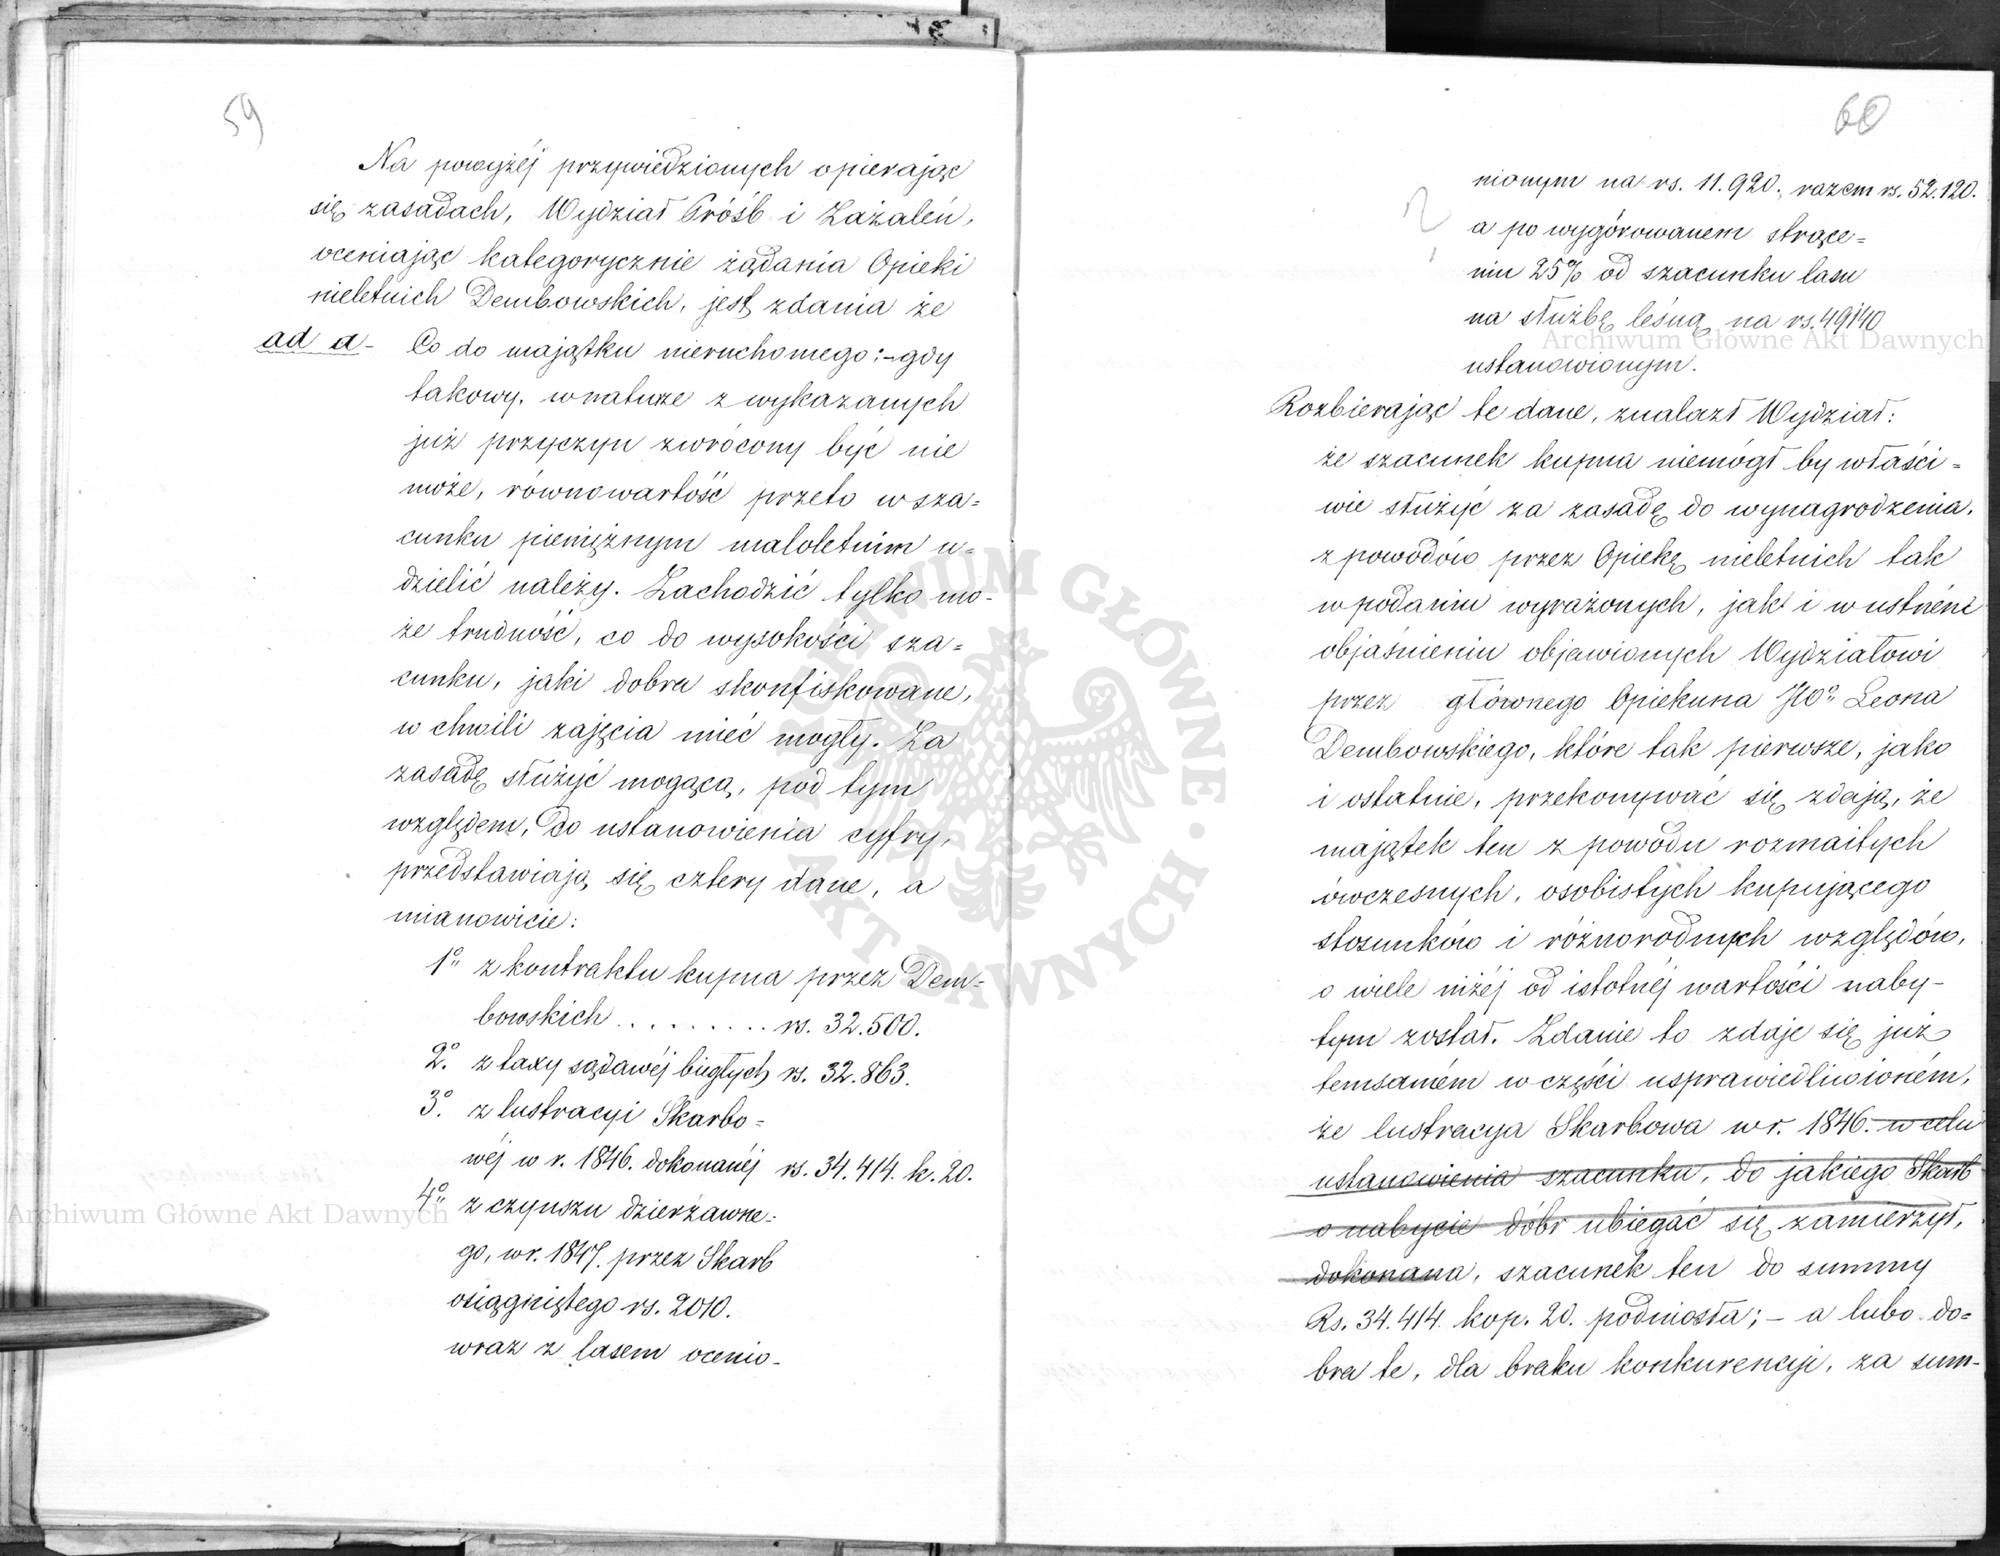 59
Na powyżéj przywiedzionych opierając
się zasadach, Wydział Próśb i Zażaleń,
oceniając kategorycznie żądania Opieki
nieletnich Dembowskich, jest zdania że
ad a- Co do majątku nieruchomego:- gdy
takowy, w naturze z wykazanych
już przyczyn zwrócony być nie
może, równowartość przeto w sza=
cunku pieniężnym małoletnim u=
dzielić należy. Zachodzić tylko mo-
że trudność, co do wysokości sza=
cunku, jaki dobra skonfiskowane,
w chwili zajęcia mieć mogły. Za
zasadę służyć mogącą, pod tym
względem, do ustanowienia cyfry,
przedstawiają się cztery dane, a
mianowicie:
1° z kontraktu kupna przez Dem=
bowskich . . . . . . . . . rs. 32.500.
2° z taxy sądawéj biegłych rs. 32.863.
3° z lustracyi Skarbo=
wéj w r. 1846. dokonanéj rs. 34.414. k. 20.
4° z czynszu dzierżawne=
go, w r. 1847. przez Skarb
osiągniętego rs. 2010.
wraz z lasem ocenio-
60
nionym na rs. 11.920. razem rs. 52.120.
a po wygórowanem strące=
niu 25% od szacunku lasu
na służbę leśną na rs. 49140
ustanowionym.
Rozbierając te dane, znalazł Wydział:
że szacunek kupna niemógł by właści=
wie służyć za zasadę do wynagrodzenia,
z powodów przez Opiekę nieletnich tak
w podaniu wyrażonych, jak i w ustném
objaśnieniu objawionych Wydziałowi
przez głównego Opiekuna Leona
Dembowskiego, które tak pierwsze, jako
i ostatnie, przekonywać się zdają, że
majątek ten z powodu rozmaitych
ówczesnych, osobistych kupującego
stosunków i różnorodnych względów,
o wiele niżéj od istotnéj wartości naby-
tym został. Zdanie to zdaje się już
temsamém w części usprawiedliwioném,
że lustracya Skarbowa w r. 1846. w celu
ustanowienia szacunku, do jakiego Skarb
o nabycie dóbr ubiegać się zamierzył,
dokonana, szacunek ten do summy
Rs. 34.414 kop. 20. podniosła; - a lubo do=
bra te, dla braku konkurencyi, za sum-
Archiwum Główne Akt Dawnych
Archiwum Główne Akt Dawnych
ARCHIWUM GŁÓWNE · AKT DAWNYCH ·